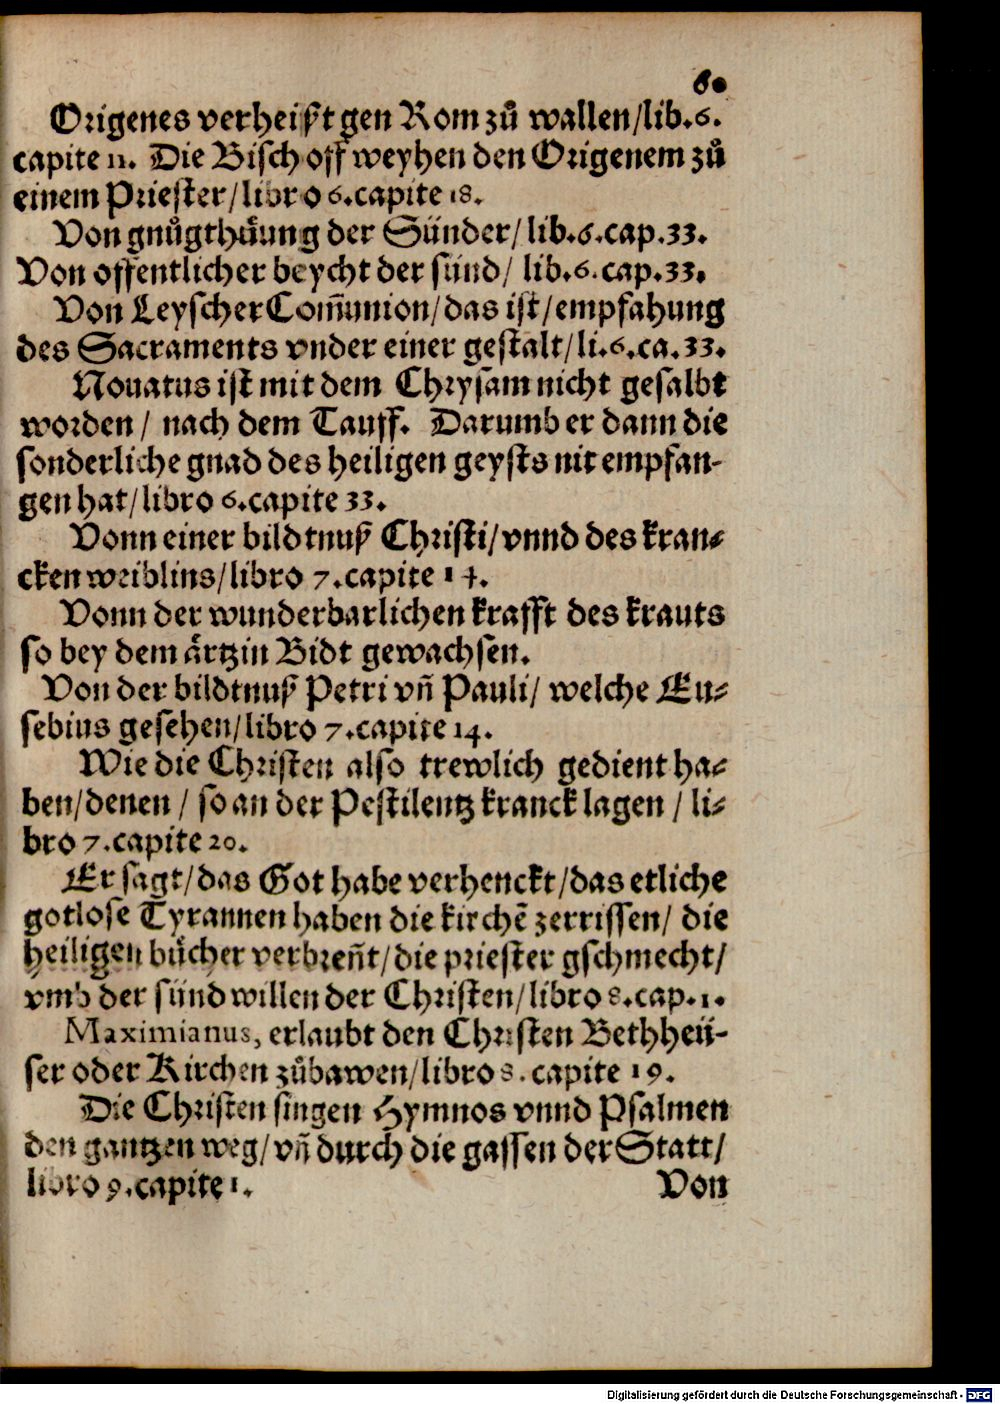 60
Origenes verheißt gen Rom zů wallen/lib.6.
capite 11. Die Bischoff weyhen den Origenem zů
einem Priester/libro 6.capite 18.
Von gnůgthůung der Sünder/ lib.6.cap.33.
Von offentlicher beycht der sünd/ lib.6.cap.33.
Von Leyscher Com̃union/das ist/empfahung
des Sacraments vnder einer gestalt/li.6.ca.33.
Nouatus ist mit dem Chrysam nicht gesalbt
worden/ nach dem Tauff. Darumb er dann die
sonderliche gnad des heiligen geysts nit empfan-
gen hat/libro 6.capite 33.
Vonn einer bildtnuß Christi/vnnd des kran-
cken weiblins/libro 7.capite 14.
Vonn der wunderbarlichen krafft des krauts
so bey dem ärtzin Bidt gewachsen.
Von der bildtnuß Petri vñ Pauli/ welche Eu-
sebius gesehen/libro 7.capite 14.
Wie die Christen also trewlich gedient ha-
ben/denen / so an der Pestilentz kranck lagen / li-
bro 7.capite 20.
Er sagt/das Got habe verhenckt/das etliche
gotlose Tyrannen haben die kirchẽ zerrissen/ die
heiligen bücher verbreñt/die priester gschmecht/
vmb der sünd willen der Christen/libro 8.cap.1.
Maximianus, erlaubt den Christen Bethheü-
ser oder Kirchen zůbawen/libro 8. capite 19.
Die Christen singen Hymnos vnnd Psalmen
den gantzen weg/vñ durch die gassen der Statt/
libro 9.capite 1. Von
Digitalisierung gefördert durch die Deutsche Forschungsgemeinschaft - DFG